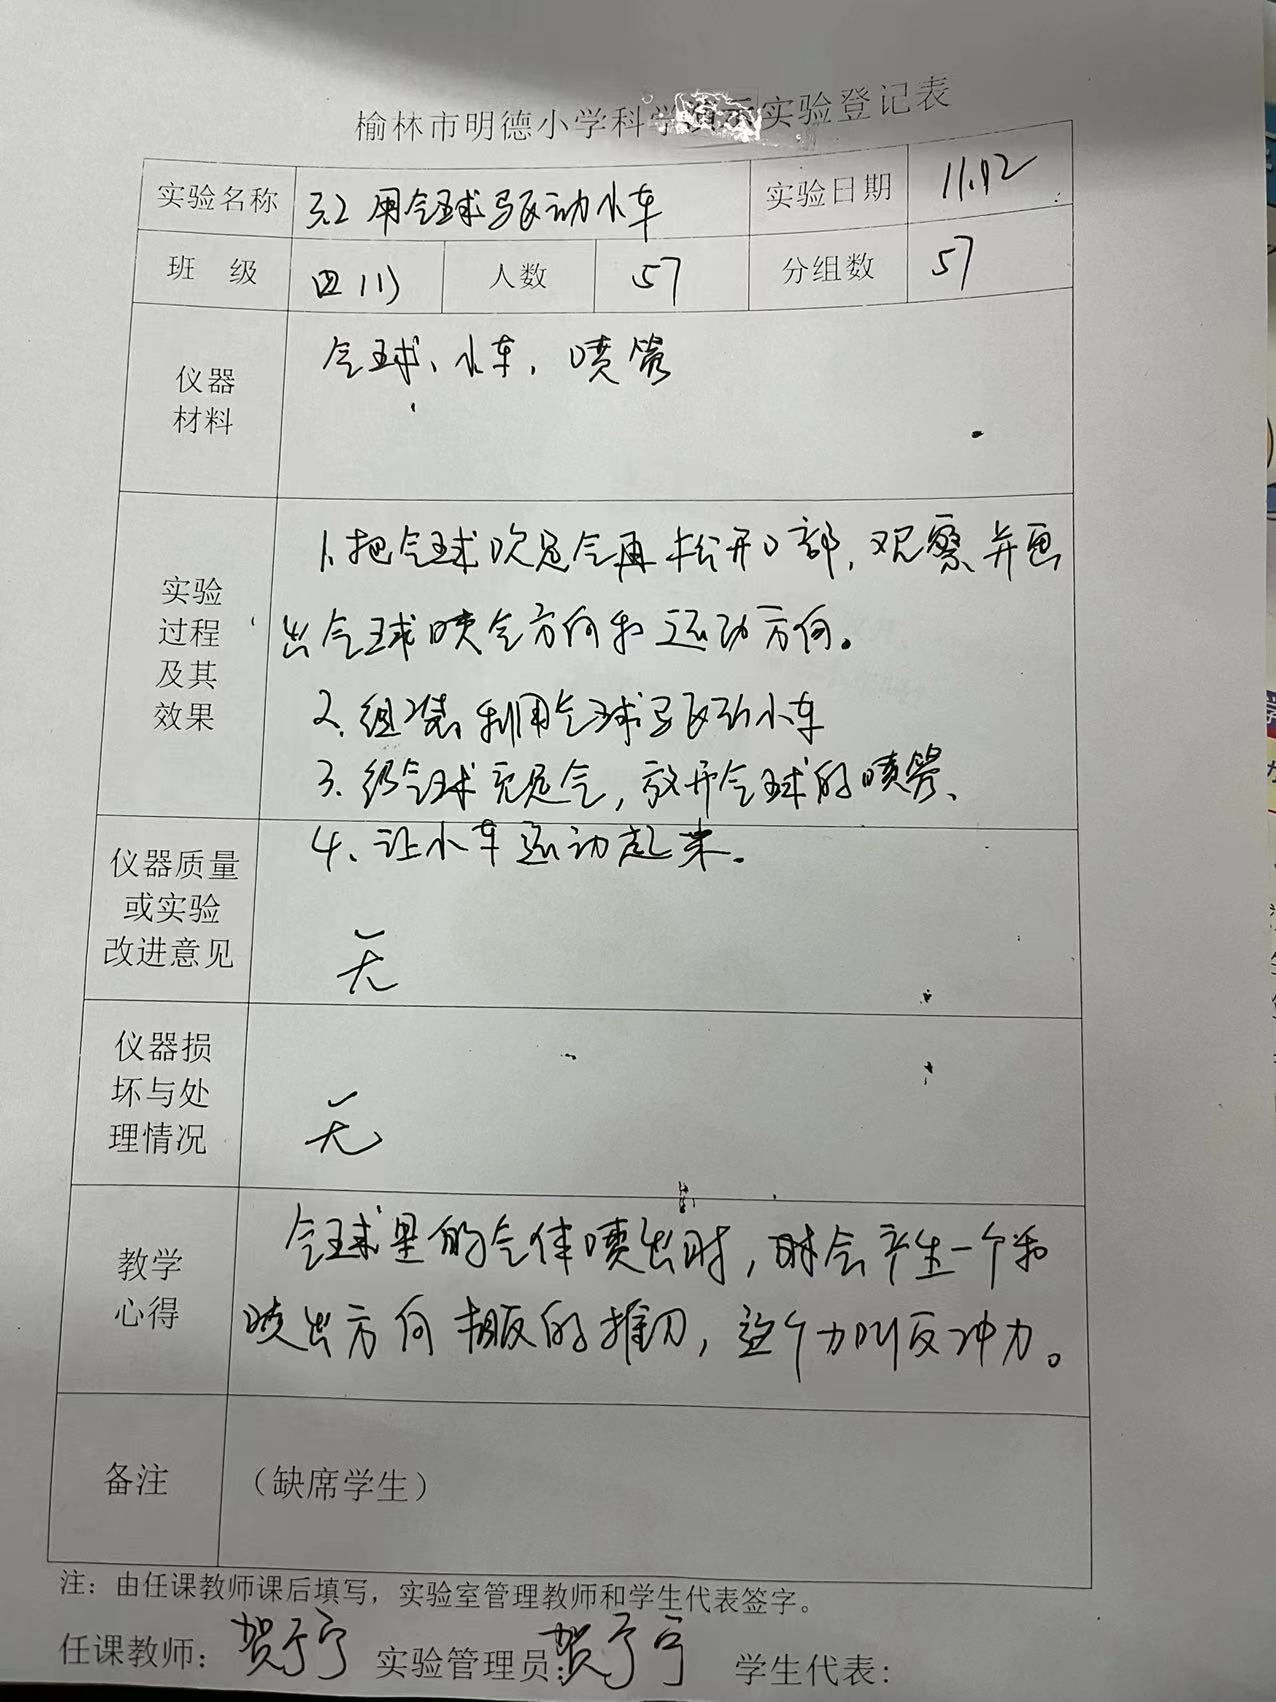 榆林市明德小学科学演示实验登记表
实验名称 3.2 用气球驱动小车 实验日期 11.12
班 级 四(1) 人数 57 分组数 57
仪器
材料
气球、小车、喷管
实验
过程
及其
效果
1、把气球吹足气再松开口部,观察并画
出气球喷气方向和运动方向。
2、组装利用气球驱动小车
3、给气球充足气,放开气球的喷管、
4、让小车运动起来。
仪器质量
或实验
改进意见
无
仪器损
坏与处
理情况
无
教学
心得
气球里的气体喷出时,时会产生一个和
喷出方向相反的推力,这个力叫反冲力。
备注 (缺席学生)
注:由任课教师课后填写,实验室管理教师和学生代表签字。
任课教师:贺 实验管理员:贺 学生代表: